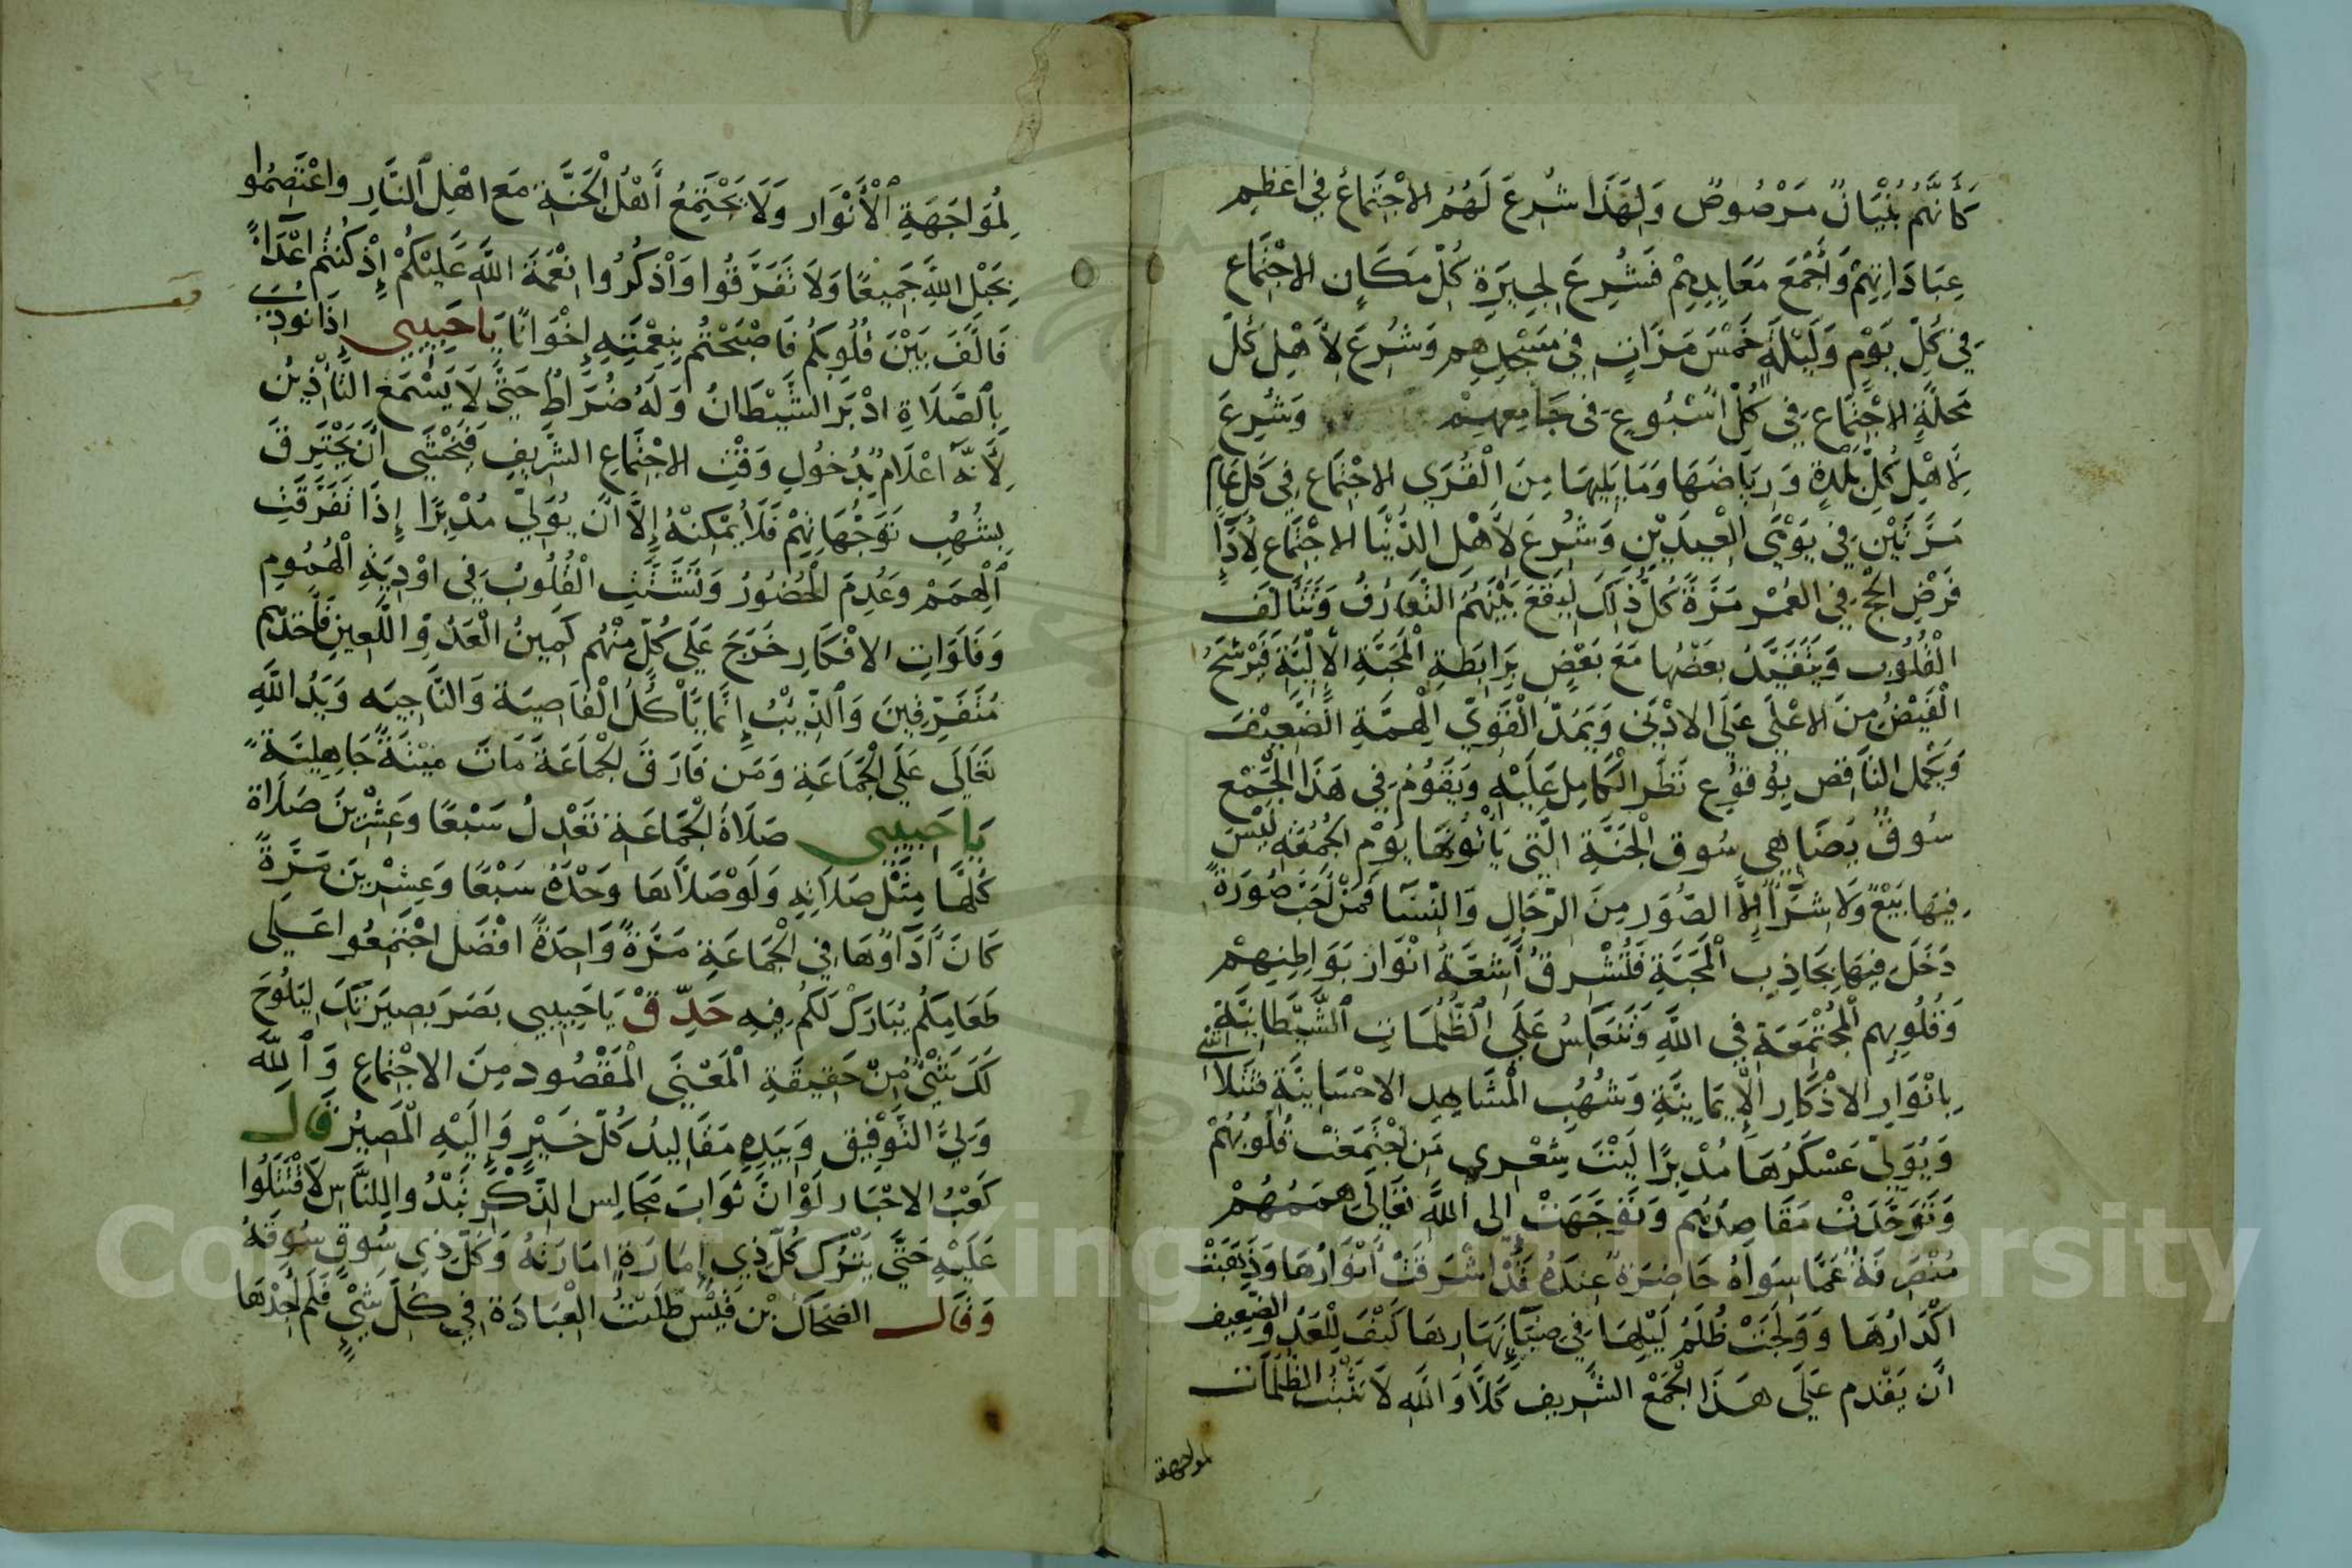 كَأَنَّهُمْ بُنْيَانٌ مَرْصُوصٌ وَلِهَذَا شُرِعَ لَهُمُ الاجْتِمَاعُ فِي اعْظَمِ
عِبَادَاتِهِمْ وَأَجْمَعِ مَعَابِدِهِمْ فَشُرِعَ لِجِيرَةِ كُلِّ مَكَانٍ الاجْتِمَاع
فِي كُلِّ يَوْمٍ وَلَيْلَةٍ خَمْسَ مَرَّاتٍ فِي مَسْجِدِهِم وَشُرِعَ لِأَهْلِ كُلِّ
مَحَلَّةٍ الاجْتِمَاعِ فِي كُلِّ اسْبُوعٍ فى جَامِعِهِمْ وَشُرِعَ
لِأَهْلِ كُلِّ بَلْدَةٍ وَرِيَاضَهَا وَمَا يَلِيهَا مِنَ الْقُرَي الاجْتِمَاع فِي كُلِّ عَامٍ
مَرَّتَيْنِ فِي يَوْمَيِ الْعِيدَيْنِ وَشُرِعَ لِأَهْلِ الدُّنْيَا الاجْتِمَاع لِأَدَاءِ
فَرْضِ الحَجِّ فِي العُمْرِ مَرَّةً كُلُّ ذَلِكَ لِيَقَعَ بَيْنَهُمُ التَّعَارُفُ وَتَتَأَلَّفَ
الْقُلُوبُ وَيَتَقَيَّدُ بَعْضُهَا مَعَ بَعْضٍ بِرَابِطَةِ الْمَحَبَّةِ الإِلَهِيَّةِ فَيَرْشَحُ
الْفَيْضُ مِنَ الاعْلَى عَلَى الادْنَى وَيَمُدُّ الْقَوِيُّ الْهِمَّةِ الضَّعِيْفَ
وَيَكْمُلُ النَّاقِصُ بِوُقُوعِ نَظَرِ الْكَامِلِ عَلَيْهِ وَيَقُومُ فِي هَذَا الْجَمْعِ
سُوقٌ يُضَاهِي سُوقَ الْجَنَّةِ الَّتِي يَأْتُونَهَا يَوْمَ الْجُمُعَةِ لَيْسَ
فِيهَا بَيْعٌ وَلَا شِرَاءٌ إِلَّا الصُّوَرِ مِنَ الرِّجَالِ وَالنِّسَا فَمَنْ أَحَبَّ صُورَةً
دَخَلَ فِيهَا بِجَاذِبِ الْمَحَبَّةِ فَتُشْرِقُ أَشِعَّةُ انْوَارِ بَوَاطِنِهِمْ
وَقُلُوبِهِمِ الْمُجْتَمِعَةِ فِي اللَّهِ وَتَنْعَكِسُ عَلَى الظُّلُمَاتِ الشَّيْطَانِيَّةِ
بِانْوَارِ الاذْكَارِ الْإِيمَانِيَّةِ وَشُهُبِ الْمَشَاهِدِ الاحْسَانِيَّةِ فَتَتَلَاشَى
وَيُوَلِّي عَسْكَرُهَا مُدْبِرًا لَيْتَ شِعْرِي مَنِ اجْتَمَعَتْ قُلُوبُهُمْ
وَتَوَحَّدَتْ مَقَاصِدُهُمْ وَتَوَجَّهَتْ الى اللَّهِ تَعَالَى هِمَمُهُمْ
مُنْصَرِفَةً عَمَّا سِوَاهُ حَاضِرَةً عِنْدَهُ قَدْ اشْرَقَتْ أَنْوَارُهَا وَذَهَبَتْ
اكْدَارُهَا وَوَلَجَتْ ظُلَمُ لَيْلِهَا فِي ضِيَاءِ نَهَارِهَا كَيْفَ لِلْعَدُوِّ الضَّعِيف
أَنْ يَقْدَمَ عَلَى هَذَا الْجَمْعِ الشَّرِيفِ كَلَّا وَاللَّهِ لَا تَثْبُتُ الظُّلُمَات
لمواجهة
لِمُوَاجَهَةِ الْأَنْوَارِ وَلَا يَجْتَمِعُ أَهْلُ الْجَنَّةِ مَعَ اهْلِ النَّارِ وَاعْتَصِمُوا
بِحَبْلِ اللَّهِ جَمِيعًا وَلَا تَفَرَّقُوا وَاذْكُرُوا نِعْمَةَ اللَّهِ عَلَيْكُمْ إِذْ كُنْتُمْ اعْدَاءً
فَالَّفَ بَيْنَ قُلُوبِكُمْ فَاصْبَحْتُمْ بِنِعْمَتِهِ إِخْوَانًا يَا حَبِيبِي إِذَا نُودِيَ
بِالصَّلَاةِ ادْبَرَ الشَّيْطَانُ وَلَهُ ضُرَاطٌ حَتَّى لَا يَسْمَعَ التَّأْذِينَ
لِأَنَّهُ اعْلَامٌ بِدُخُولِ وَقْتِ الاجْتِمَاعِ الشَّرِيفِ فَيَخْشَى أَنْ يَحْتَرِقَ
بِشُهُبِ تَوَجُّهَاتِهِمْ فَلَا يُمْكِنُهُ إِلَّا أَنْ يُوَلِّيَ مُدْبِرًا إِذَا تَفَرَّقَتِ
الْهِمَمُ وَعُدِمَ الْحُضُورُ وَتَشَتَّتَتِ الْقُلُوبُ فِي اوْدِيَةِ الْهُمُومِ
وَفَلَوَاتِ الافْكَارِ خَرَجَ عَلَى كُلٍّ مِنْهُم كَمِينُ الْعَدُوِّ اللَّعِينِ فَأَخَذَهُمْ
مُتَفَرِّقِينَ وَالذِّئْبُ إِنَّمَا يَأْكُلُ الْقَاصِيَةَ وَالنَّاحِيَه وَيَدُ اللَّهِ
تَعَالَى عَلَى الْجَمَاعَةِ وَمَنْ فَارَقَ الْجَمَاعَةَ مَاتَ مِيْتَةً جَاهِلِيَّةً
يَا حَبِيبِي صَلَاةُ الْجَمَاعَةِ تَعْدِلُ سَبْعًا وَعِشْرِينَ صَلَاة
كُلُّهَا مِثْلُ صَلَاتِهِ وَلَوْ صَلَّاهَا وَحْدَهُ سَبْعًا وَعِشْرِينَ مَرَّةً
كَانَ أَدَاؤُهَا فِي الْجَمَاعَةِ مَرَّةً وَاحِدَةً افْضَل اجْتَمِعُوا عَلى
طَعَامِكُمْ يُبَارَكْ لَكُمْ فِيهِ حَدِّقْ يَا حَبِيبِي بَصَرَ بَصِيرَتِكَ لِيَلُوحَ
لَكَ شَيْئٌ مِنْ حَقِيقَةِ الْمَعْنَى الْمَقْصُود مِنَ الاجْتِمَاعِ وَاللَّه
وَلِيُّ التَّوْفِيقِ وَبِيَدِهِ مَقَالِيدُ كُلِّ خَيْرٍ وَإِلَيْهِ الْمَصِيرُ قَال
كَعْبُ الاحْبَار لَوْ انَّ ثَوَابَ مَجَالِسِ الذِّكْرِ بَدُوا لِلنَّاسِ لَاقْتَتَلُوا
عَلَيْهِ حَتَّى يَتْرُكَ كُلُّ ذِي إِمَارَةٍ امَارَتَهُ وَكُلُّ ذِي سُوقٍ سُوقَهُ
وَقَال الضَحَّاكُ بْنُ قَيْسٍ طَلَبْتُ الْعِبَادَةَ فِي كُلِّ شَيْئٍ فَلَمْ أَجِدْهَا
Copyright © King Saud University